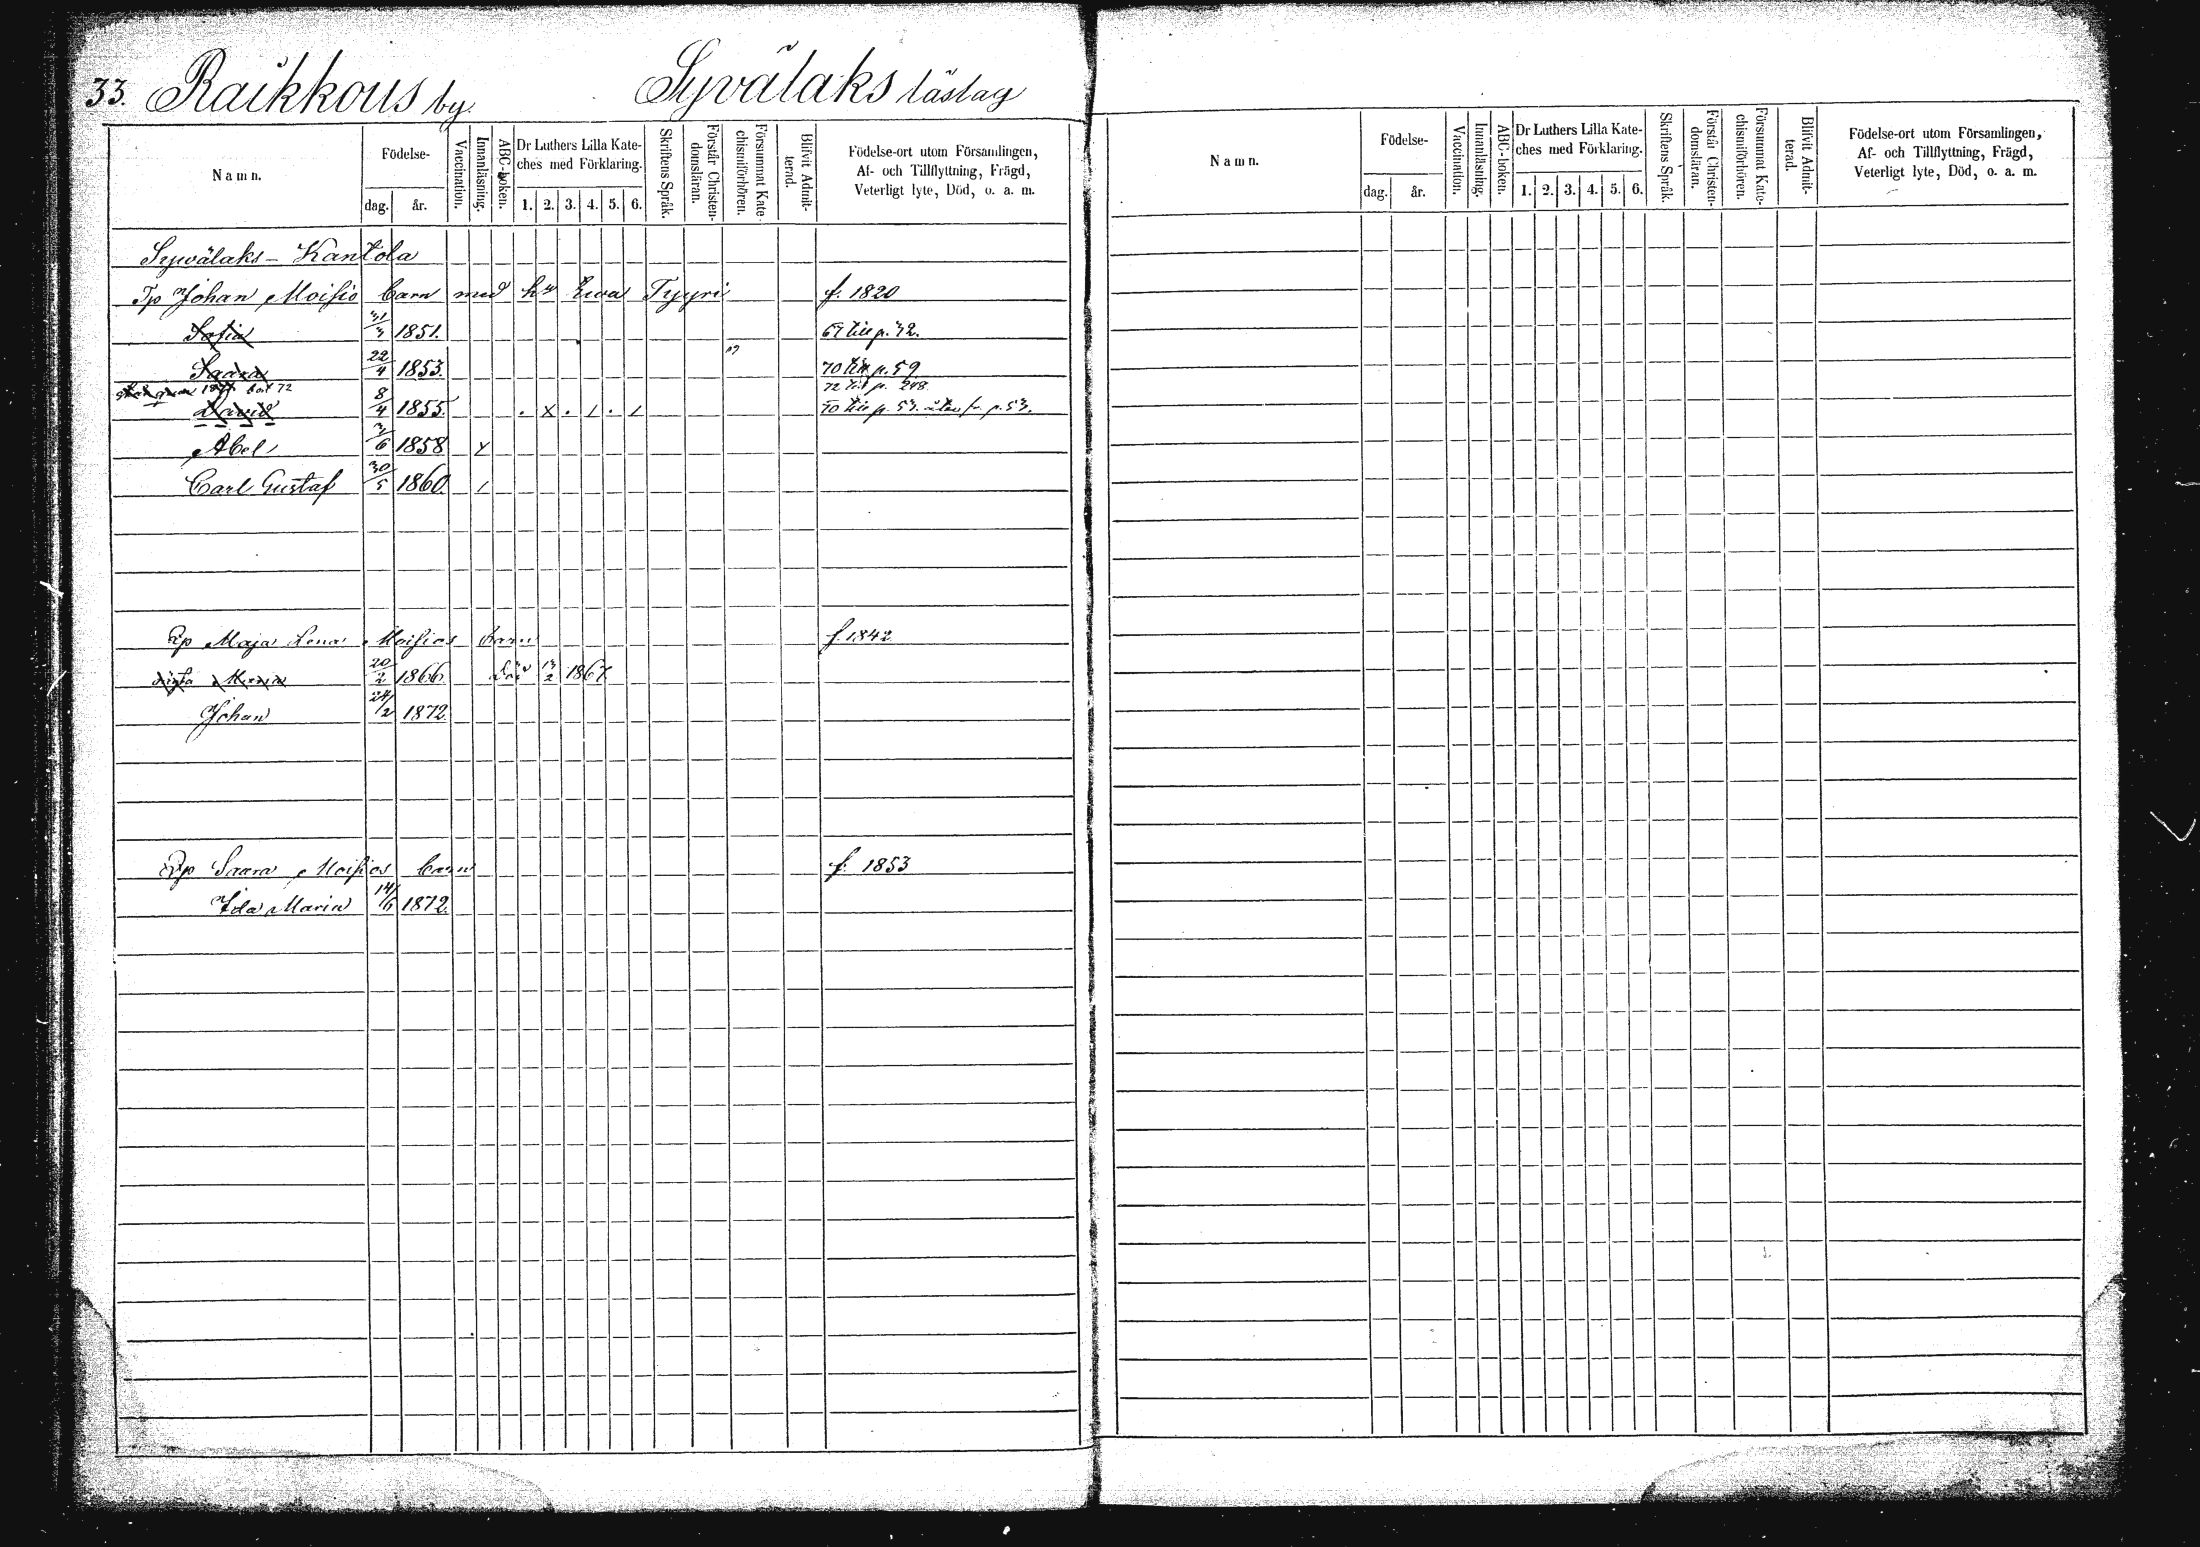 33. Raikkous by. Syvälaks läslag
Namn.
Födelse-
dag.
år.
Vaccination.
Innanläsning.
ABC-boken.
Dr Luthers Lilla Kate-
ches med Förklaring.
1. 2. 3. 4. 5. 6.
Skriftens Språk.
Förstår Christen-
domsläran.
Försummat Kate-
chismiförhören.
Blifvit Admit-
terad.
Födelse-ort utom Församlingen,
Af- och Tillflyttning, Frägd,
Veterligt lyte, Död, o. a. m.
Syvälaks - Kantola
Tp Johan Moisio barn med h u Ewa Tyyri f. 1820
Sofia 31/3 1851. 67 till p. 72.
Saara 22/4 1853. 70 till p. 59
72 72 till p. 248.
David 8/4 1855. . x . / . / 70 till p. 53. åter fr. p. 53.
Abel 3/6 1858 x
Carl Gustaf 30/5 1860. /
Maja Lena Moisios barn f. 1842
Maria 20/2 1866. Död 13/2 1867
Johan 24/2 1872.
Saara Moisios barn f. 1853
Ida Maria 14/6 1872.
Namn.
Födelse-
dag.
år.
Vaccination.
Innanläsning.
ABC-boken.
Dr Luthers Lilla Kate-
ches med Förklaring.
1. 2. 3. 4. 5. 6.
Skriftens Språk.
Förstår Christen-
domsläran.
Försummat Kate-
chismiförhören.
Blifvit Admit-
terad.
Födelse-ort utom Församlingen,
Af- och Tillflyttning, Frägd,
Veterligt lyte, Död, o. a. m.